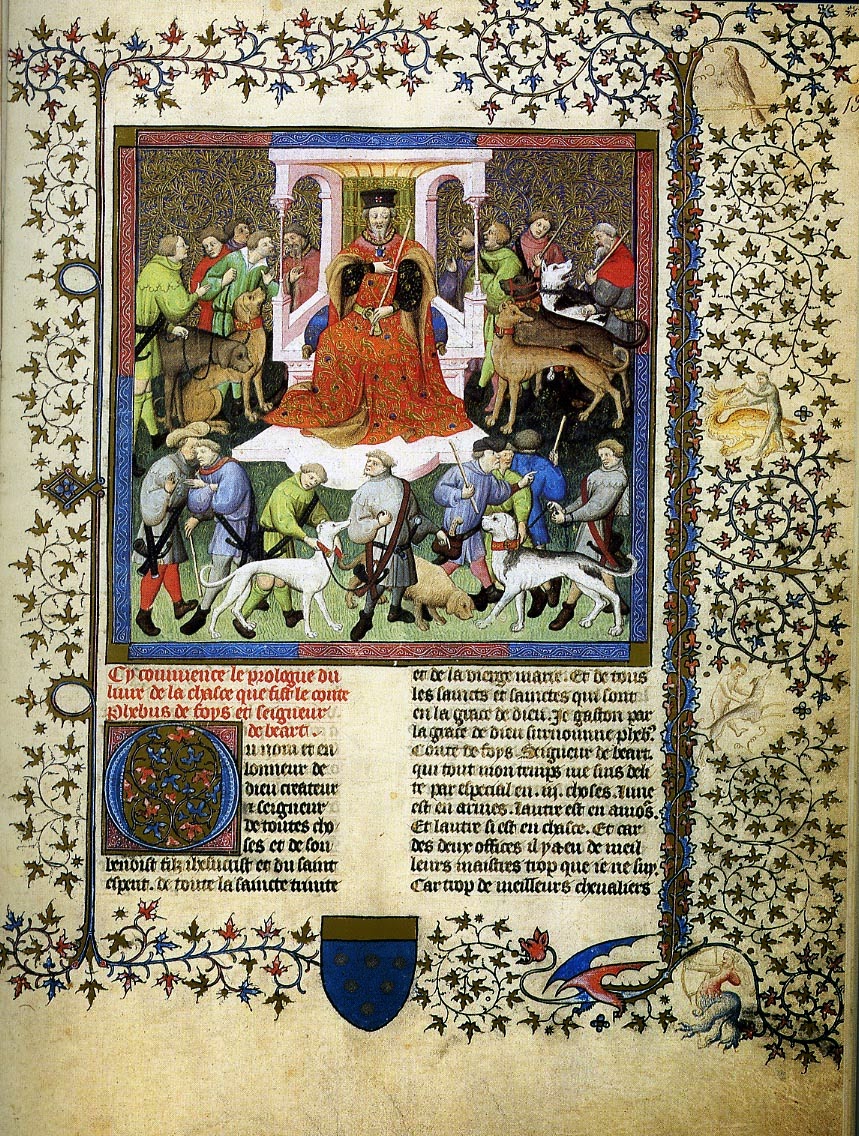 Cy commence le prologue du
liure de la chasce que fist le conte
Phebus de foys et seigneur
de beart.
Ou nom et en
lonneur de
dieu createur
et seigneur
de toutes cho
ses et de son
benoist filz ihesucrist et du saint
esperit. de toute la saincte trinite
et de la vierge marie. Et de tous
les saincts et sainctes qui sont
en la grace de dieu. Je gaston par
la grace de dieu surnomme pheb'.
Conte de foys. Seigneur de beart.
qui tout mon temps me suis deli
te par especial en .iij. choses. lune
est en armes. lautre est en amōs.
Et lautre si est en chasce. Et car
des deux offices il y a eu de meil
leurs maistres trop que ie ne suy.
Car trop de meilleurs cheualiers